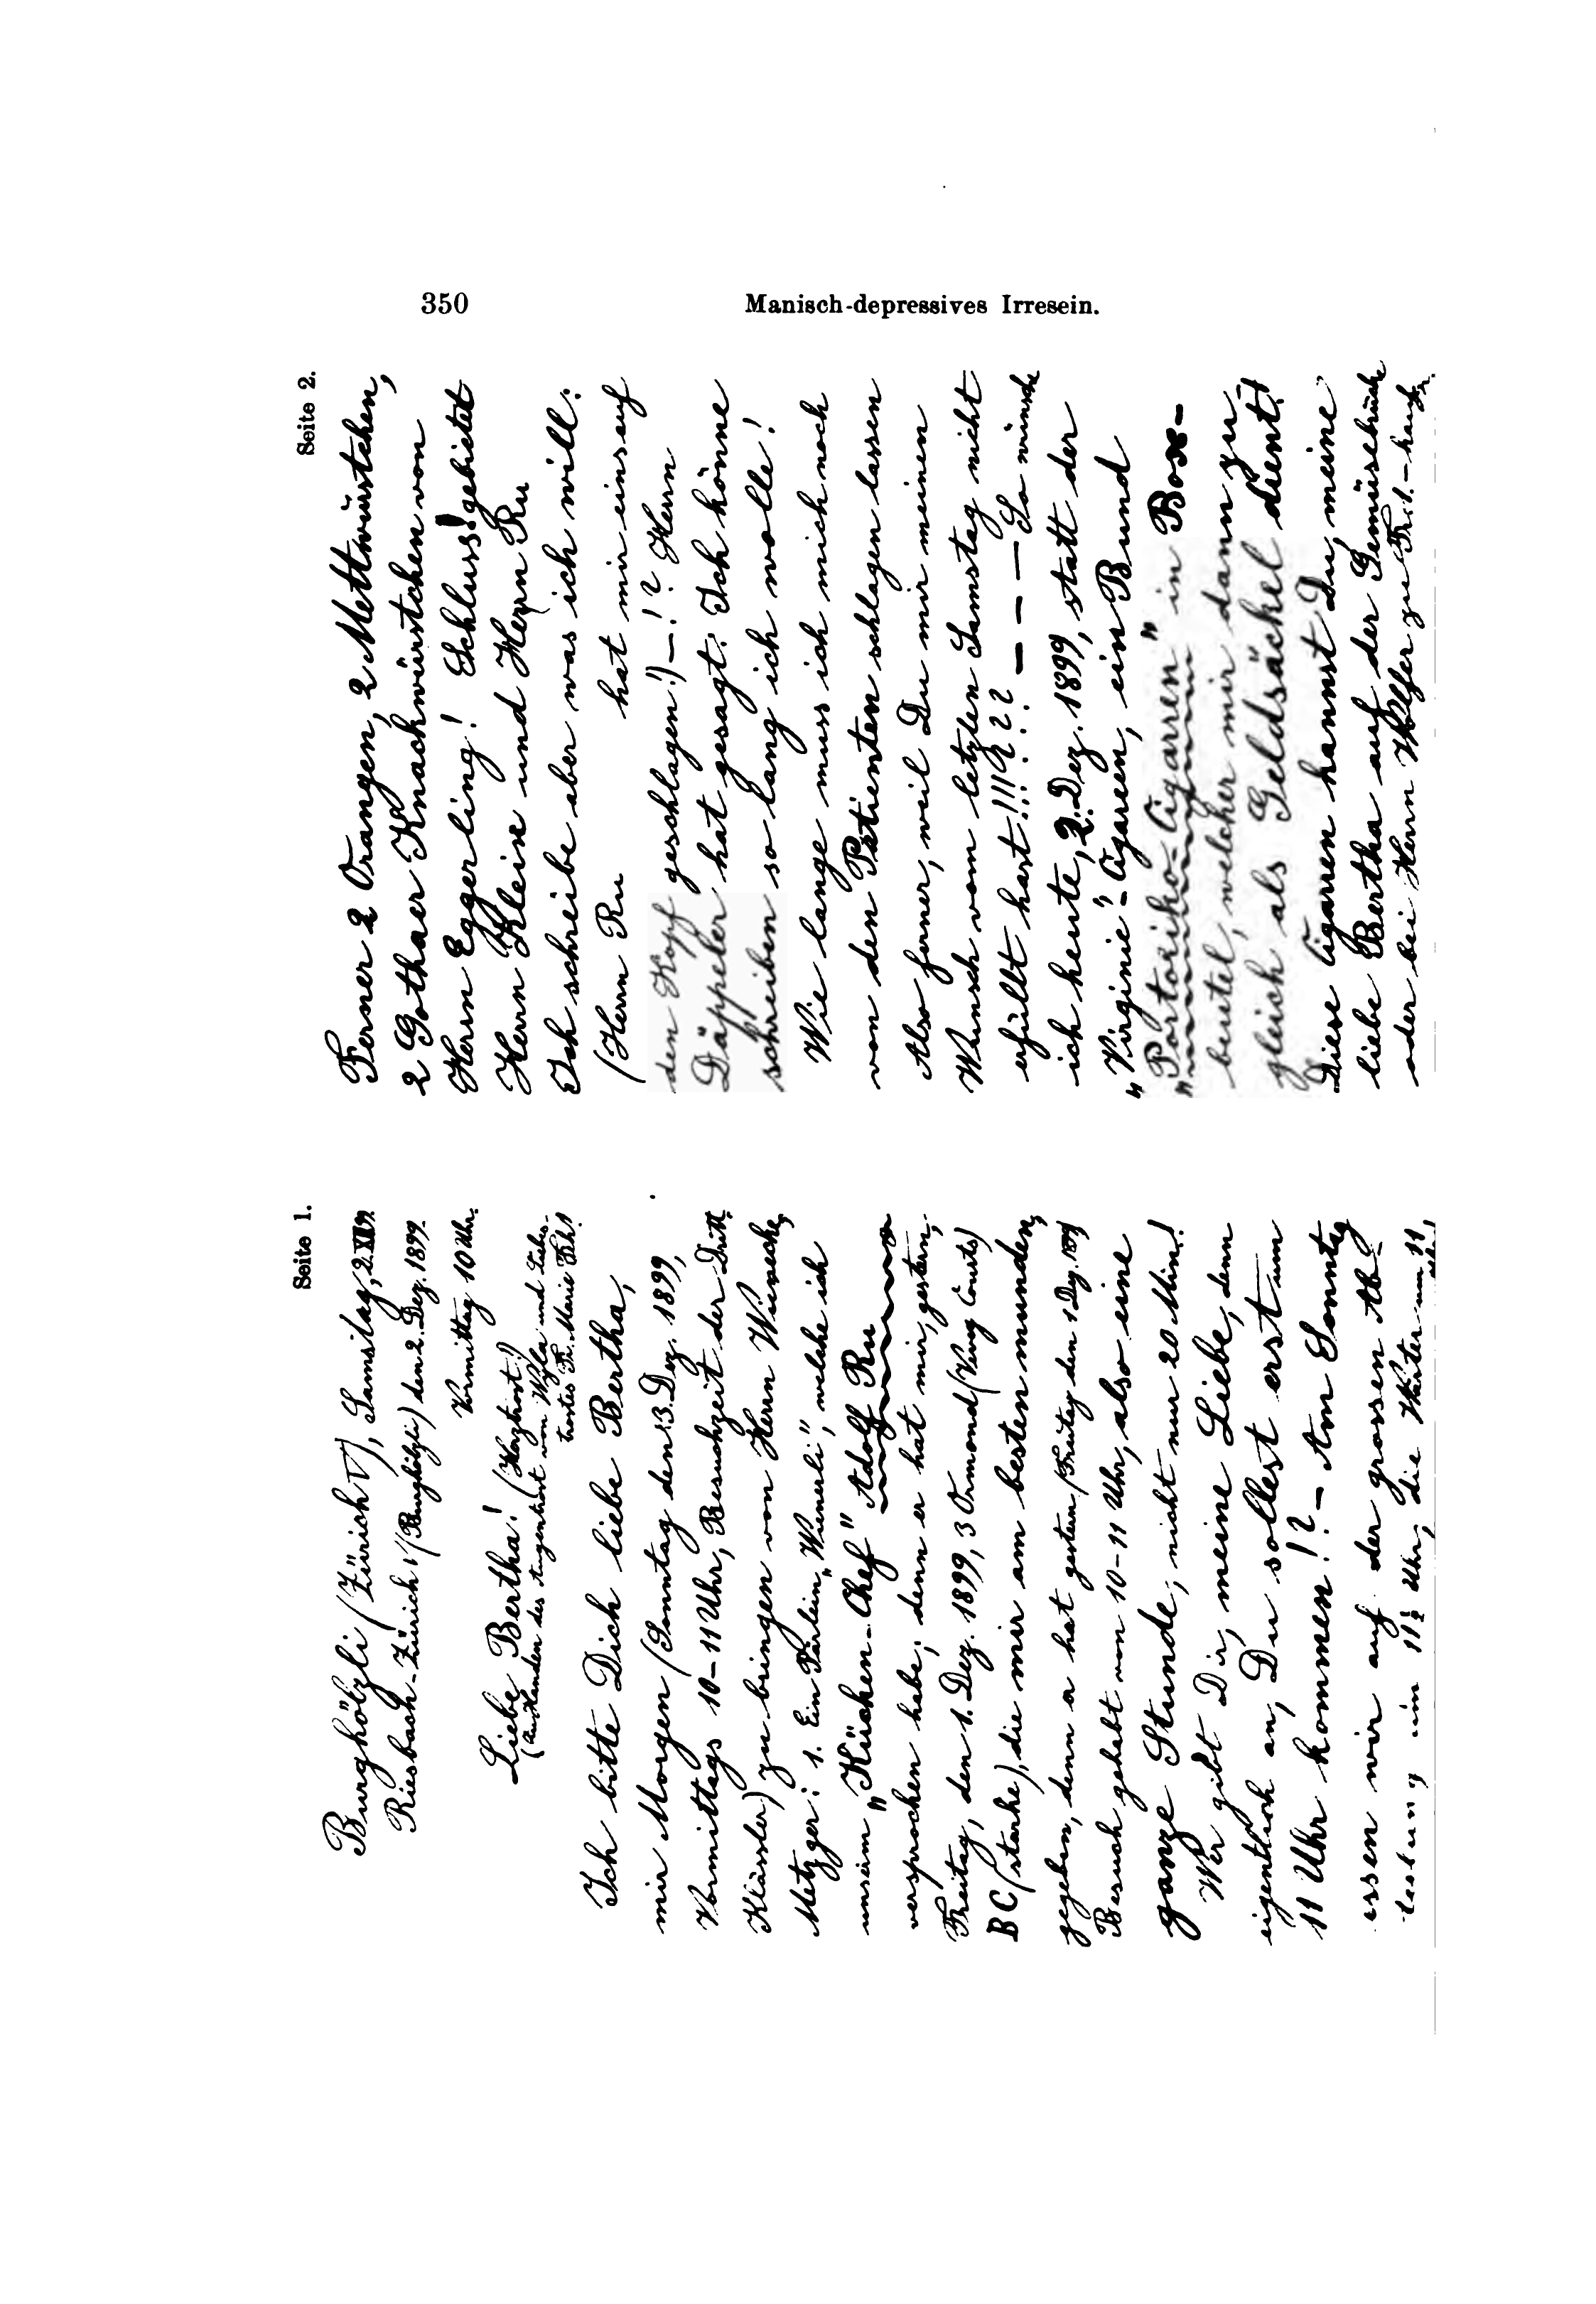 350
Manisch-depressives Irresein.
Seite 1.
Burghölzli (Zürich V), Samstag, 2. XII 99.
Riesbach-Zürich (Burghölzli) den 2. Dez. 1899.
Vormittag 10 Uhr.
Liebe Bertha! (Herzhaft!)
(an Handen des Angehört von Wyla und Liebe-
trautes Frl. Marie
Ich bitte Dich liebe Bertha,
mir Morgen (Sonntag den 3. Dez. 1899,
Vormittags 10-11 Uhr, Besuchzeit der Dritt
Klässler) zu bringen von Herrn Wünsche,
Metzger: 1. Ein Pärlein „Wienerli", welche ich
unserm „Küchen-Chef" Adolf Ru
versprochen habe; denn er hat mir, gestern,
Freitag, den 1. Dez. 1899, 3 Ormond (Vevey Courts)
BC (starke), die mir am besten munden,
gegeben, denn er hat gestern (Freitag den 1 Dez. 189
Besuch gehabt von 10-11 Uhr, also eine
ganze Stunde, nicht nur 20 Min!
Wer gibt Dir, meine Liebe, denn
eigentlich an, Du sollest erst um
11 Uhr kommen!? - Am Sonntag
essen wir auf der grossen Ab-
um 11½ Uhr, die Wärter um 11,
Seite 2.
Ferner 2 Orangen, 2 Mettwürstchen,
2 Gothaer Knachwürstchen von
Herrn Eggerling! Schluss! gebietet
Herrn Kleise und Herrn Ru
Ich schreibe aber was ich will:
(Herrn Ru hat mir eins auf
den Kopf geschlagen!) —!? Herrn
Däppeler hat gesagt: Ich könne
schreiben so lang ich wolle!
Wie lange muss ich mich noch
von den Patienten schlagen lassen
Also ferner, weil Du mir meinen
Wunsch vom letzten Samstag nicht
erfüllt hast!!!???? — — — So wünsche
ich heute, 2. Dez. 1899, statt der
„Virginie"-Cigareen, ein Bund
„Portoriko-Cigarren" in Box-
beutel, welcher mir dann zu
gleich als Geldsäckel dient!
Diese Cigarren kannst Du, meine
liebe Bertha auf der Gemüsebrücke
oder bei Herrn zu Fr. 1.- kaufen.